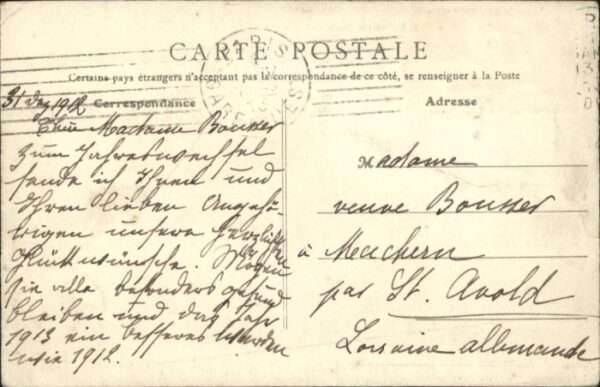 CARTE POSTALE
Certains pays étrangers n'acceptant pas la correspondance de ce côté, se renseigner à la Poste
Correspondance
Adresse
PARIS
31 Dez 1912
Madame Bousser
zum Jahreswechsel
sende ich Ihnen und
Ihren lieben Angehö-
rigen unsere herzlichsten
Glückwünsche. Mögen
sie alle besonders gesund
bleiben und das Jahr
1913 ein besseres werden
wie 1912.
Madame
veuve Bousser
à Machern
par St. Avold
Lorraine allemande